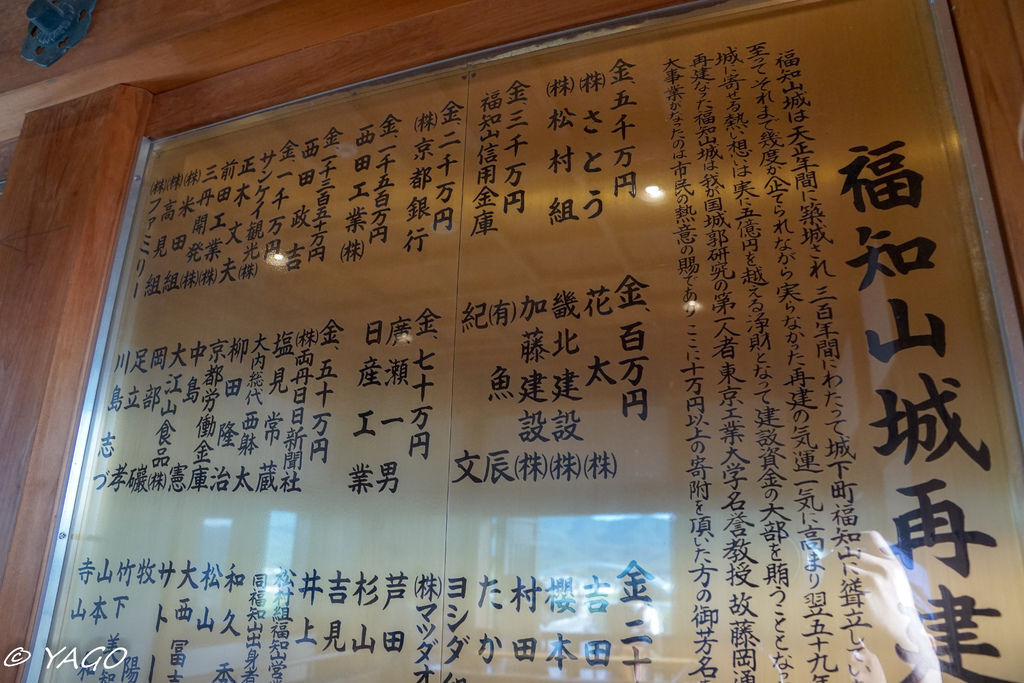 福知山城再建
福知山城は天正年間に築城され、三百年間にわたって城下町福知山に聳立してい
至ってそれまで幾度か企てられながら実らなかった再建の気運一気に高まり翌五十九年
城に寄せる熱い想いは実に五億円を越える浄財となって建設資金の大部を賄うこととな
再建なった福知山城は、我が国城郭研究の第一人者東京工業大学名誉教授故藤岡通
大事業がなったのは市民の熱意の賜であり ここに十万円以上の寄附を頂いた方の御芳名
金、五千万円
(株)さとう
(株)松村組
金、三千万円
福知山信用金庫
金、二千万円
(株)京都銀行
金、一千五百万円
西田工業(株)
金、一千三百五十万円
西田政吉
金、一千万円
サンケイ観光(株)
正木丈夫
前田工業(株)
三丹開発(株)
(株)米田組
(株)高見組
(株)ファミリー
金、百万円
花太(株)
畿北建設(株)
加藤建設(株)
(有)魚辰
紀文
金、七十万円
廣瀬一男
日産工業
金、五十万円
(株)両丹日日新聞社
塩見常蔵
大内総代 西躰太
柳田隆治
京都労働金庫
中島憲
大江山食品(株)
岡部磯
足立孝
川島志づ
金、二十
吉田
櫻本
村田
たか
ヨシダ
(株)マツダオ
芦田
杉山
吉見
井上
松村組福知山営
同福知山出身者
和久
松山
大西冨吉
サトー
牧
竹下陽
山本
寺山
© YAGO